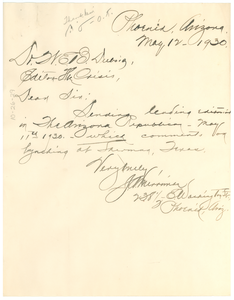 Phoenix, Arizona.
May 12 - 1930.
Dr. W E B Dubois,
Editor The Crisis,
Dear Sir:
Sending leading editorial
in The Arizona Republican - May
11th 1930 - which comments on
lynching at Sherman, Texas.
Very truly,
2 E. Washington St
Phoenix, Ariz